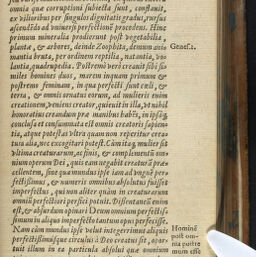 omnia quæ corruptioni subiecta sunt, constauit,
ex vilioribus per singulos dignitatis gradus, rursus
ascendēdo ad vniuersi perfectionē procedens. Hinc
primum mineralia prodierunt post vegetabilia,
plantæ, & arbores, deinde Zoophita, demum ani
Genes.1.
mantia bruta, per ordinem reptilia, natantia, vo
lantia, quadrupedia. Postremò verò creauit sibi si
miles homines duos, marem inquam primum &
postremo feminam, in qua perfecti sunt cæli, &
terra, & omnis ornatus eorum, ad mulieris enim
creationem, veniens creator, quieuit in illa, vt nihil
honoratius creandum præ manibus habēs, in ipsaq́;
conclusa et consummata est omnis creatoris sapien
tia, atque potestas vltra quam non reperitur crea-
tura alia, nec excogitari potest. Cùm itaq; mulier sit
vltima creaturarum, ac finis, & complementū om
nium operum Dei, quis eam negabit creaturā præ
cellentem, sine qua mundus ipse iam ad vnguē per
fectissimus, & numeris omnibus absolutus fuisset
imperfectus, qui non aliter quàm in creaturarum
omnium perfectiori perfici potuit. Dissentaneū enim
est, & absurdum opinari Deum omnium perfectis-
simum in aliquo imperfecto tantum opus perfecisse.
Nam cùm mundus ipse velut integerrimus aliquis
perfectissimusq́ue circulus à Deo creatus sit, opor-
tuit illum in ea particula absolui quæ omnium
Hominē
post om-
nia postre
mum esse